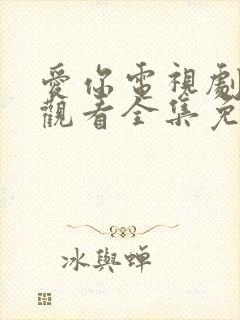 愛你電視劇
觀看全集免
冰與蟬